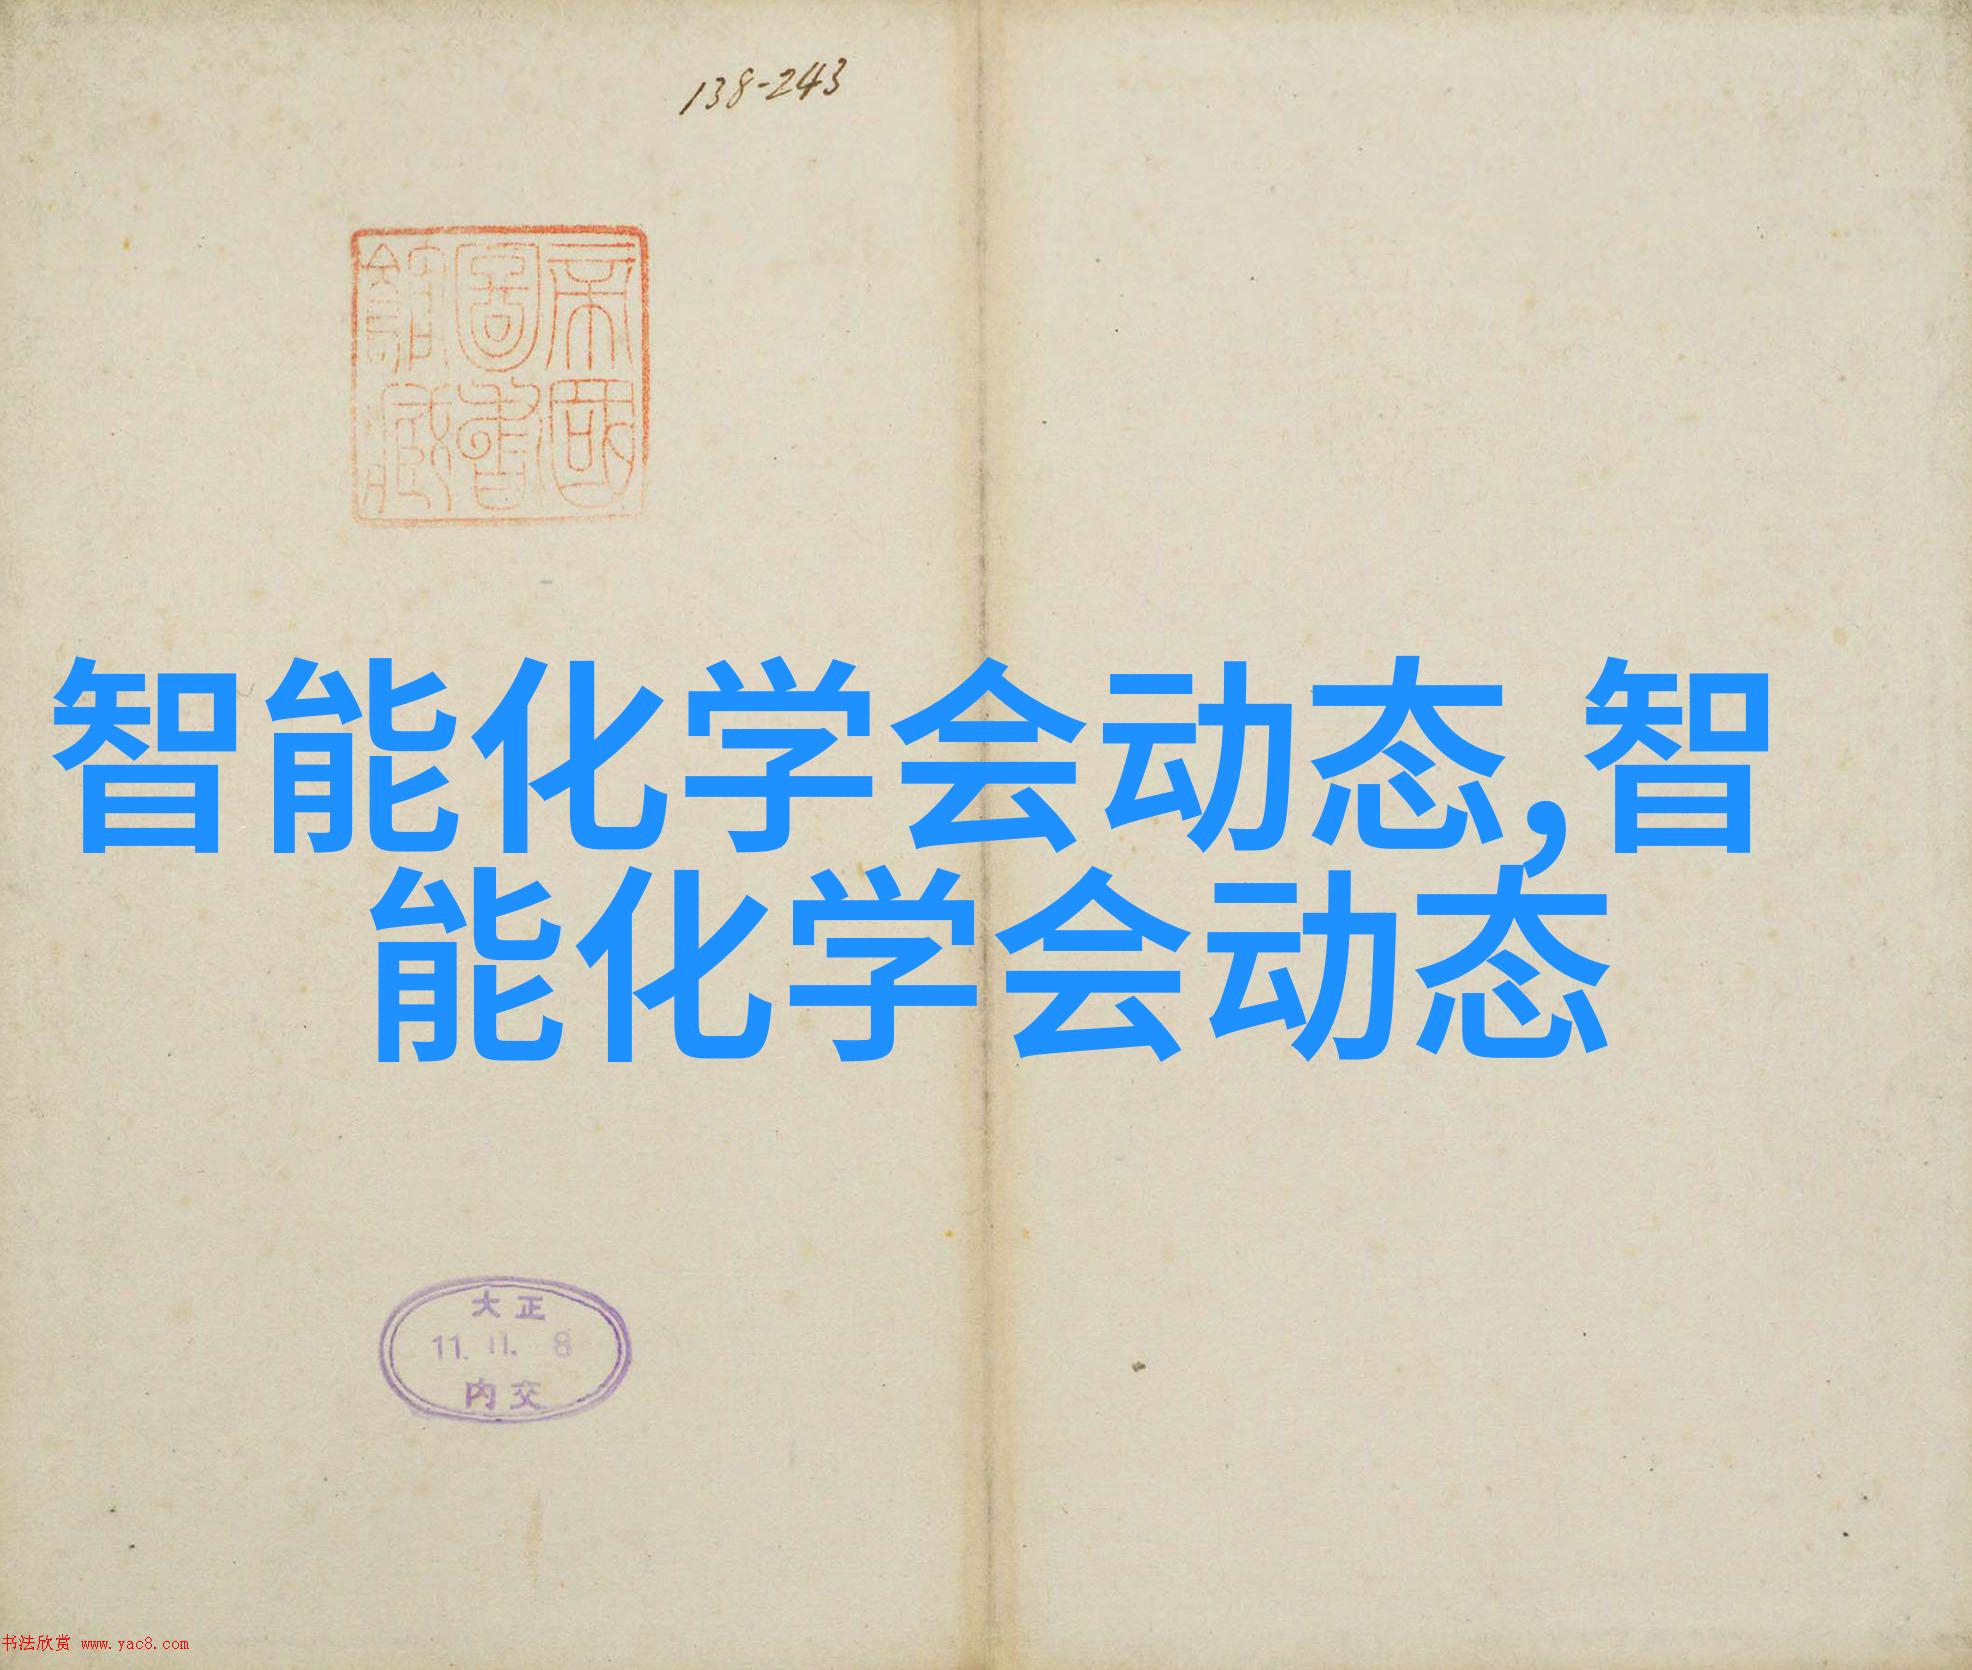 138-243
帝國
圖書
館藏
智能化学会动态,智
能化学会动态
大正
11. 11. 8
内交
书法欣赏 www.yac8.com